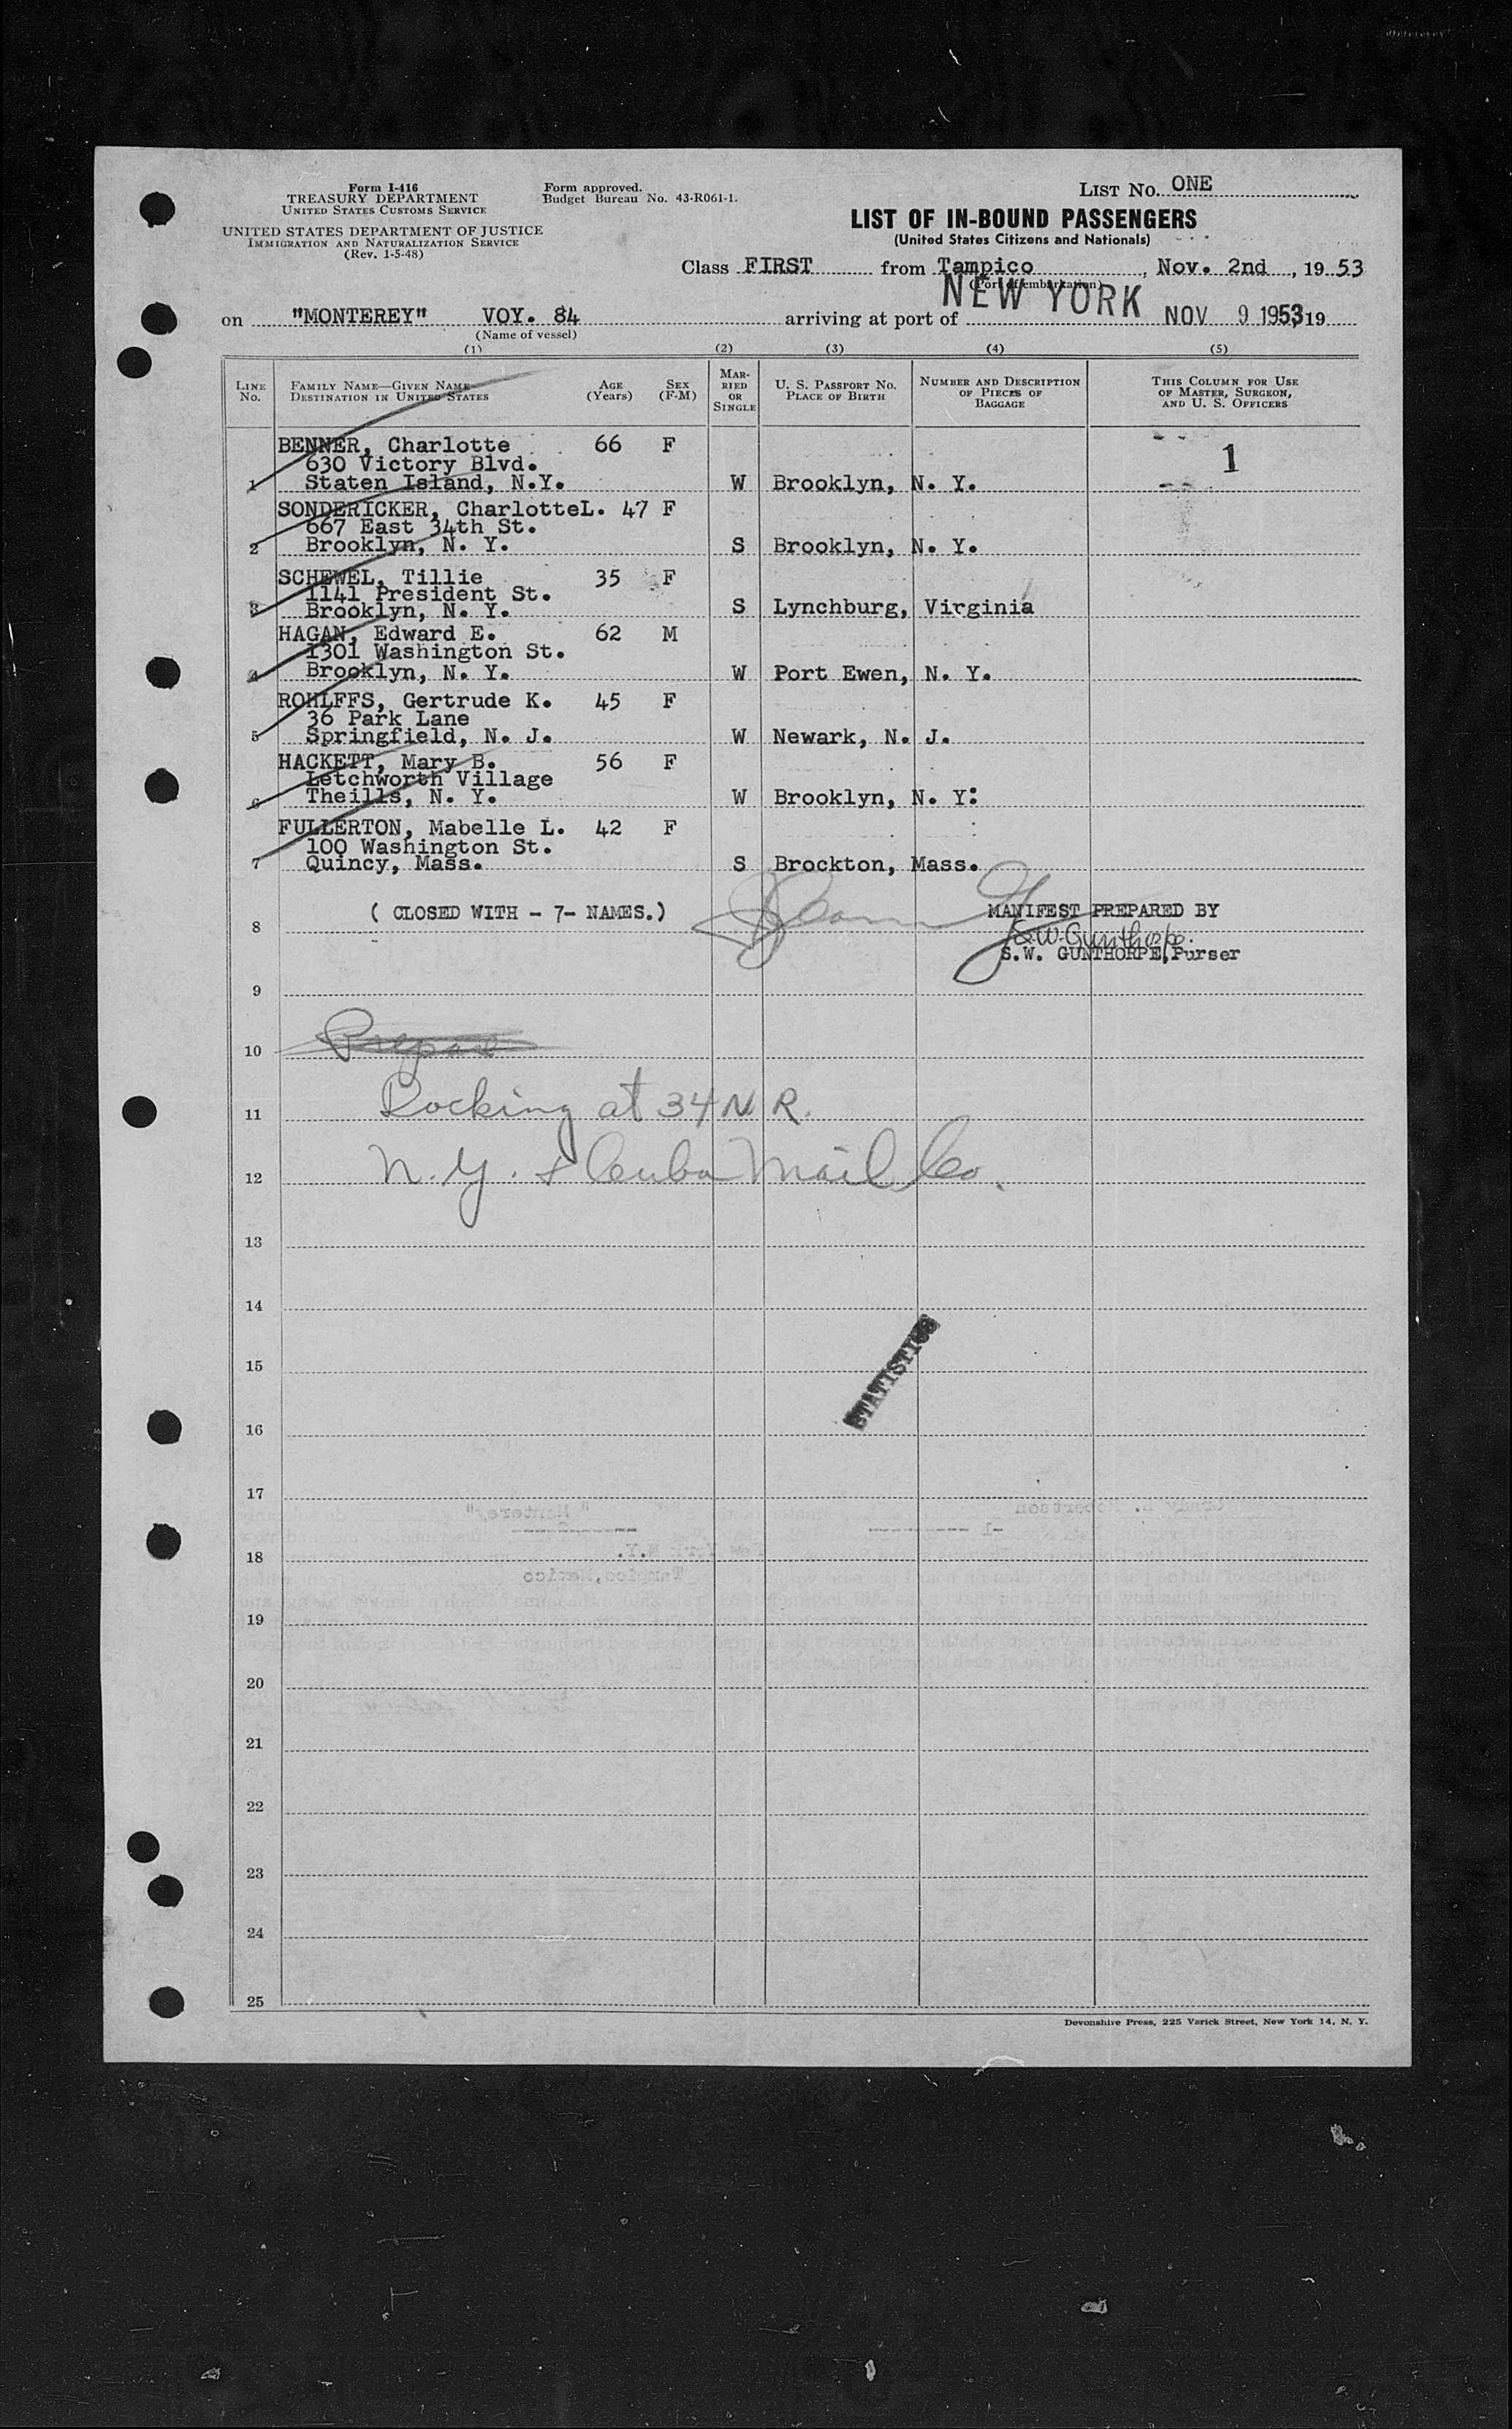 Form I-416
TREASURY DEPARTMENT
UNITED STATES CUSTOMS SERVICE
UNITED STATES DEPARTMENT OF JUSTICE
IMMIGRATION AND NATURALIZATION SERVICE
(Rev. 1-5-48)
Form approved.
Budget Bureau No. 43-R061-1.
LIST NO. ONE
LIST OF IN-BOUND PASSENGERS
(United States Citizens and Nationals)
Class FIRST from Tampico, Nov. 2nd, 1953
(Port of embarkation)
on "MONTEREY" VOY. 84 arriving at port of NEW YORK NOV 9 1953, 19
(Name of vessel)
(1) (2) (3) (4) (5)
LINE NO.
FAMILY NAME—GIVEN NAME
DESTINATION IN UNITED STATES
AGE (Years)
SEX (F-M)
MARRIED OR SINGLE
U. S. PASSPORT NO.
PLACE OF BIRTH
NUMBER AND DESCRIPTION OF PIECES OF BAGGAGE
THIS COLUMN FOR USE OF MASTER, SURGEON, AND U. S. OFFICERS
BENNER, Charlotte 66 F 1
630 Victory Blvd.
1 Staten Island, N.Y. W Brooklyn, N. Y.
SONDERICKER, CharlotteL. 47 F
667 East 34th St.
2 Brooklyn, N. Y. S Brooklyn, N. Y.
SCHEWEL, Tillie 35 F
1141 President St.
3 Brooklyn, N. Y. S Lynchburg, Virginia
HAGAN, Edward E. 62 M
1301 Washington St.
4 Brooklyn, N. Y. W Port Ewen, N. Y.
ROHLFFS, Gertrude K. 45 F
36 Park Lane
5 Springfield, N. J. W Newark, N. J.
HACKETT, Mary B. 56 F
Letchworth Village
6 Theills, N. Y. W Brooklyn, N. Y:
FULLERTON, Mabelle L. 42 F
100 Washington St.
7 Quincy, Mass. S Brockton, Mass.
( CLOSED WITH - 7- NAMES.) MANIFEST PREPARED BY
8 S.W. Gunthorpe.
S.W. GUNTHORPE, Purser
9
10
11 Docking at 34 N R.
12 N.Y. & Cuba Mail Co.
13
14
15
STATISTICS
16
17
18
19
20
21
22
23
24
25
Devonshire Press, 225 Varick Street, New York 14, N. Y.